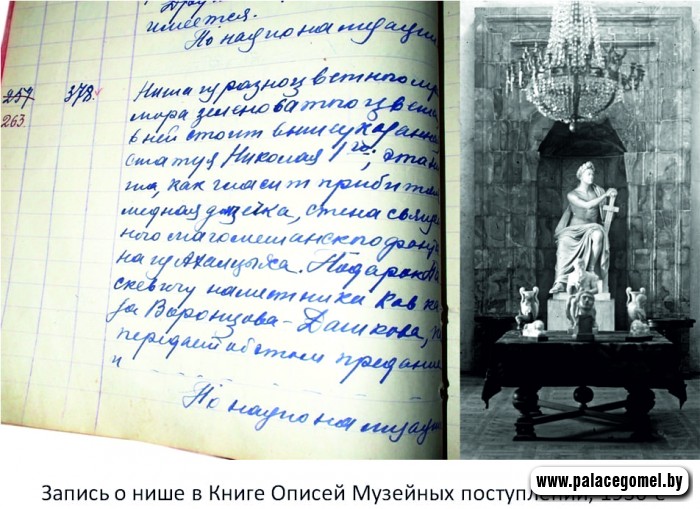 имеется.
По национализации
257 378.
263.
Ниша из разноцветного мра
мора зеленоватого цвета
в ней стоит вышеуказанная
статуя Николая I го; эта ни
ша, как гласит прибитая
медная дощечка, стена священ
ного магометанского
на из Ахалцыха. Подарок Па
скевичу наместника Кавка
за Воронцова-Дашкова,
передает об этом предание
По национализации
Запись о нише в Книге Описей Музейных поступлений, 1930-е
www.palacegomel.by